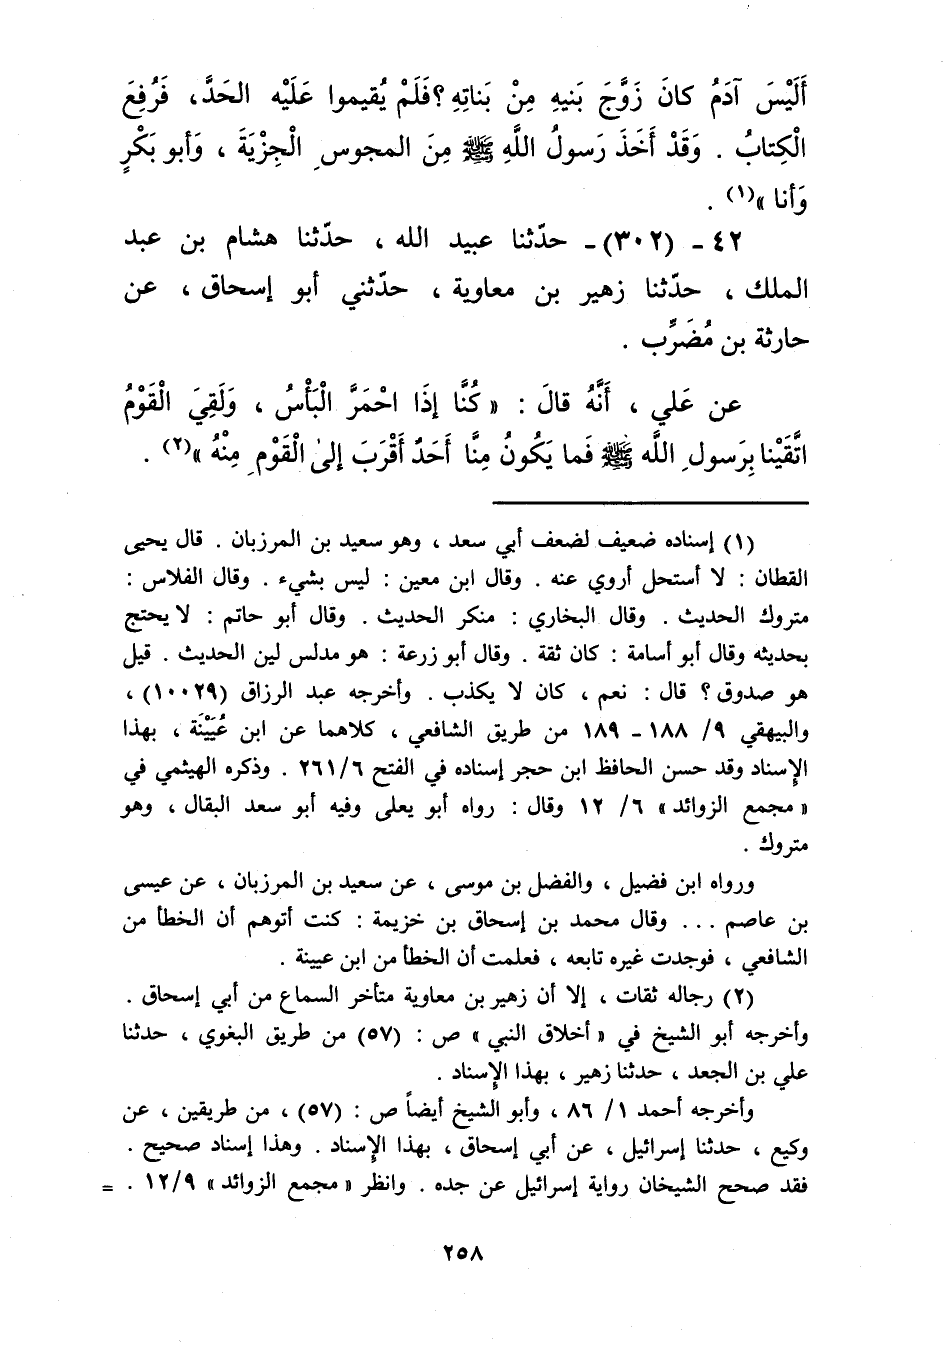 أَلَيْسَ آدَمُ كانَ زَوَّجَ بَنيهِ مِنْ بَناتِهِ ؟ فَلَمْ يُقيموا عَلَيْه الحَدَّ ، فَرُفِعَ
الْكِتابُ . وَقَدْ أَخَذَ رَسولُ اللَّهِ ﷺ مِنَ المجوسِ الْجِزْيَةَ ، وَأبو بَكْرٍ
وَأنا »(١) .
٤٢ - (٣٠٢) - حدّثنا عبيد الله ، حدّثنا هشام بن عبد
الملك ، حدّثنا زهير بن معاوية ، حدّثني أبو إسحاق ، عن
حارثة بن مُضَرِّب .
عن عَلي ، أَنَّهُ قالَ : « كُنَّا إذَا احْمَرَّ الْبَأْسُ ، وَلَقِيَ الْقَوْمُ
اتَّقَيْنا بِرَسولِ اللَّه ﷺ فَما يَكُونُ مِنَّا أَحَدٌ أَقْرَبَ إلىٰ الْقَوْمِ مِنْهُ »(٢) .
(١) إسناده ضعيف لضعف أبي سعد ، وهو سعيد بن المرزبان . قال يحيى
القطان : لا أستحل أروي عنه . وقال ابن معين : ليس بشيء . وقال الفلاس :
متروك الحديث . وقال البخاري : منكر الحديث . وقال أبو حاتم : لا يحتج
بحديثه وقال أبو أسامة : كان ثقة . وقال أبو زرعة : هو مدلس لين الحديث . قيل
هو صدوق ؟ قال : نعم ، كان لا يكذب . وأخرجه عبد الرزاق (١٠٠٢٩) ،
والبيهقي ٩/ ١٨٨ - ١٨٩ من طريق الشافعي ، كلاهما عن ابن عُيَيْنَة ، بهذا
الإسناد وقد حسن الحافظ ابن حجر إسناده في الفتح ٦/ ٢٦١ . وذكره الهيثمي في
« مجمع الزوائد » ٦/ ١٢ وقال : رواه أبو يعلى وفيه أبو سعد البقال ، وهو
متروك .
ورواه ابن فضيل ، والفضل بن موسى ، عن سعيد بن المرزبان ، عن عيسى
بن عاصم ... وقال محمد بن إسحاق بن خزيمة : كنت أتوهم أن الخطأ من
الشافعي ، فوجدت غيره تابعه ، فعلمت أن الخطأ من ابن عيينة .
(٢) رجاله ثقات ، إلا أن زهير بن معاوية متأخر السماع من أبي إسحاق .
وأخرجه أبو الشيخ في « أخلاق النبي » ص : (٥٧) من طريق البغوي ، حدثنا
علي بن الجعد ، حدثنا زهير ، بهذا الإسناد .
وأخرجه أحمد ١/ ٨٦ ، وأبو الشيخ أيضاً ص : (٥٧) ، من طريقين ، عن
وكيع ، حدثنا إسرائيل ، عن أبي إسحاق ، بهذا الإسناد . وهذا إسناد صحيح .
فقد صحح الشيخان رواية إسرائيل عن جده . وانظر « مجمع الزوائد » ٩/ ١٢ . =
٢٥٨